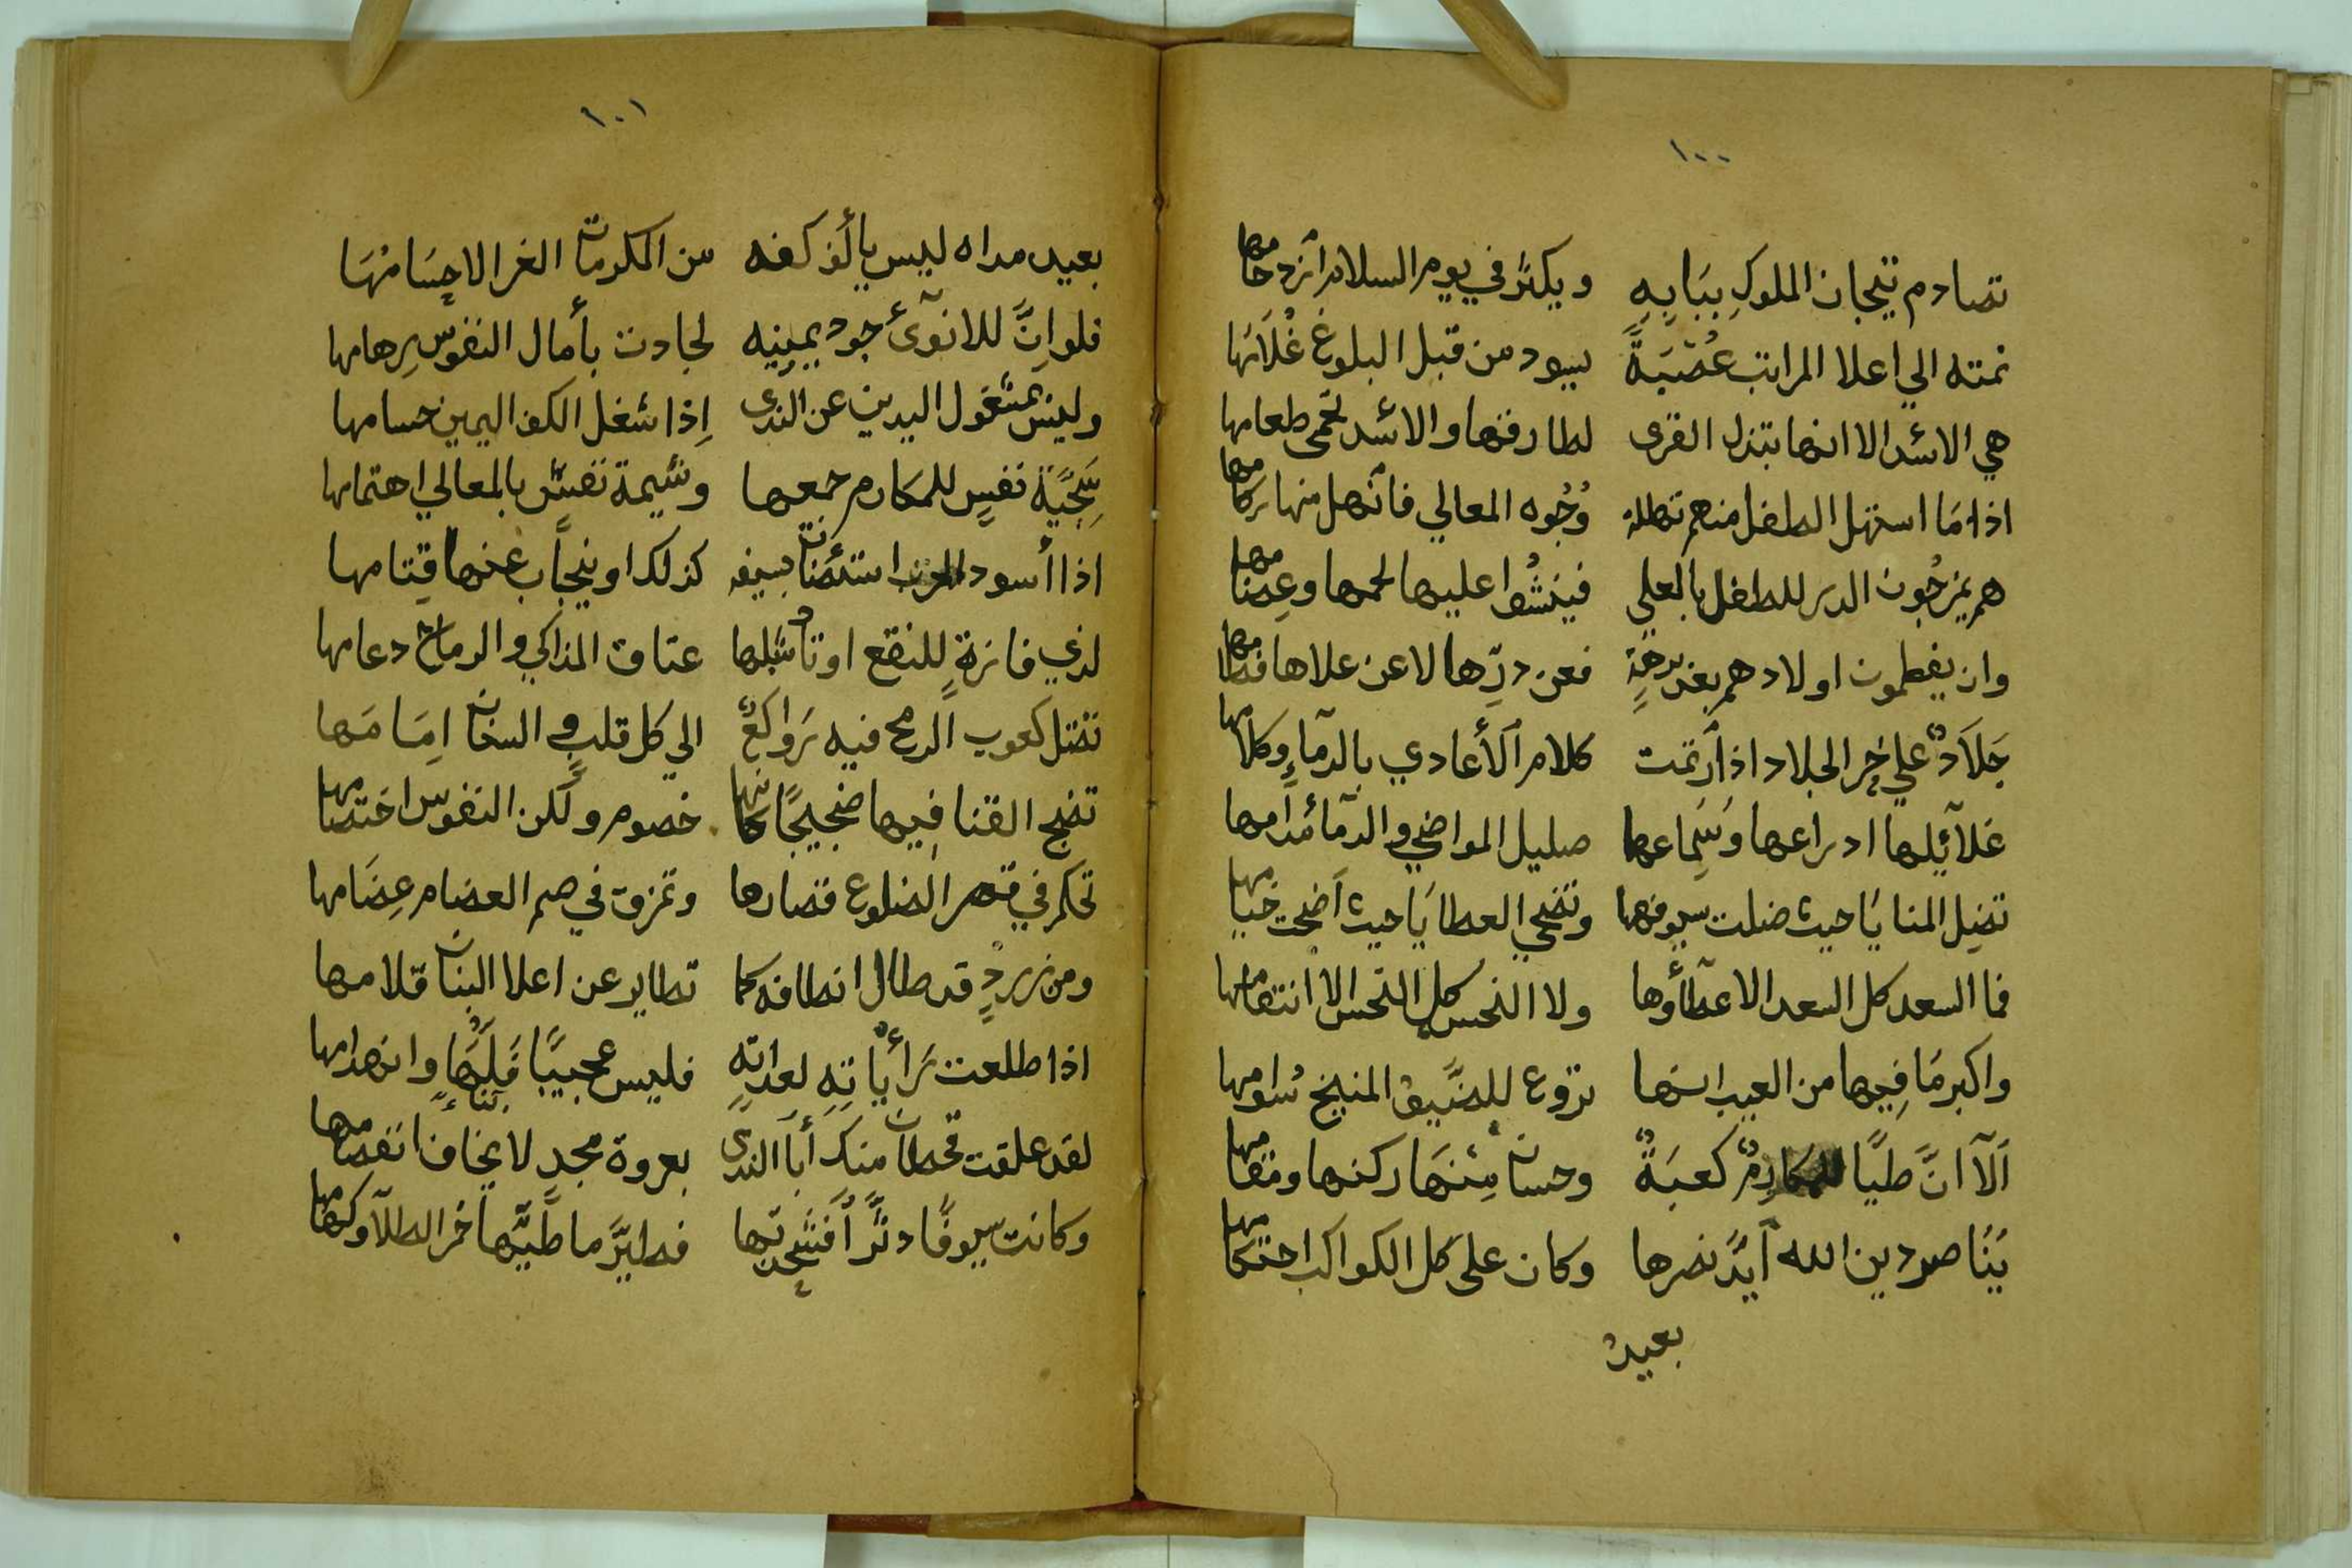 ١٠٠
تصادم تيجان الملوكِ ببَابِهِ ويكثر في يوم السلام أزدحامها
نمته الي اعلا المراتب عُصْبَةً يسود من قبل البلوغ غُلَامُها
هي الاسُد الا انها تبذل القرى لطارقها والاسُد تحمى طعامها
اذا مَا استهل الطفل منهم تهللة وُجُوه المعالي فأنهل منها ركامها
هم يمزجُون الدر للطفل بالعلي فينشُوا عليها لحمها وعِظامها
وان يفطمون اولادهم بعد برهةٍ فعن درِّها لا عن علاها فطامها
جَلَادٌ علي حر الجلاد اذا أرتمت كلام الأعادي بالدمآءِ وكلامها
غلآئِلها ادراعها وسَماعها صليل المواضي والدمآ مُدامها
تضِل المنايَا حيث ضلت سيوفها وتضحي العطايَا حيث أضحت خيامها
فما السعد كل السعد الا عطآؤها ولا النحس كل النحس الا انتقامها
واكبر مَا فِيها من العيب انها تروع للضَّيفْ المنيخ سُوامها
اَلآ انَّ طيًّا للمكارِمْ كعبَةٌ وحسان مِنهَا ركنها ومقامها
بِنَاصر دين الله أيدَّ نصرها وكان على كل الكواكب احتكامها
بعيد
١٠١
بعيد مداه ليس يألف كفه من المكرمات الغر الا جِسَامُهَا
فلو انَّ للانوآئ جود يمينِه لجادت بأمال النفوس رِهامها
وليس بمشغول اليدين عن الندى اِذا شغل الكف اليمين حسامها
سَجيَّة نفسٍ للمكارم جمعها وشيمة نفسٍ بالمعالي اهتمامها
اذا أسود الحرب استضائت بسيفه كذلك او ينجاب عنها قِتامها
لدي فازةٍ للنقع اوتاد شبلها عتاق المذاكي والرماح دعامها
تضل كعوب الرمح فيه رَواكعٌ الي كل قلبٍ والسنان اِمَامَها
تضج القنا فيها ضجيجًا كانها خصوم ولكن النفوس اختصامها
تحكم في قصر الضلوع قصارها وتمزق في صم العضام عِضَامها
ومن زردٍ قد طال انطافه كما تطاير عن اعلا البنان قلامها
اذا طلعت رَأياتهِ لعداتِهِ فليس عجيبًا فَلُّهَا وانهدامها
لقد علقت قحطان منك أبا الندى بعروة مجدٍ لا يخاف انفصامها
وكانت سيوفًا دثَّراً فشحذتها فطيرَّ ما طيَّها خر الطلآ وكهامها